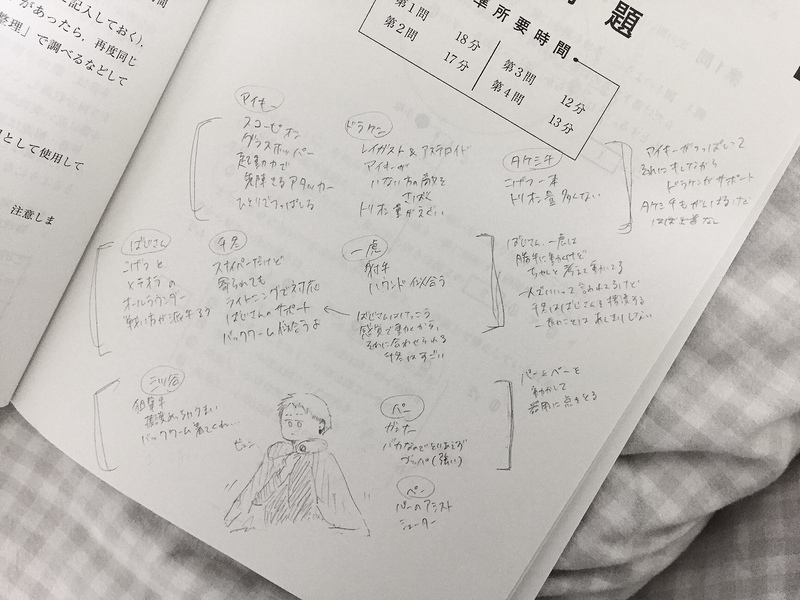 記入しておく),
があったら，再度同じ
整理」で調べるなどして
として使用して
注意しま
題
準所要時間
第1問 18分
第2問 17分
第3問 12分
第4問 13分
アイキー
スコーピオン
グラスホッパー
起動力で
アタッカー
ひとりでつっぱしる
ドラケン
レイガスト & アステロイド
アイキーが
いない方の敵を
さばく
トリオン量がえぐい
タケミチ
こげつ一本
トリオン量多くない
アイキーがつっぱしって
それにキレながら
ドラケンがサポート
タケミチもがんばるけど
ほぼ出番なし
ばじさん
こげつと
メテオラの
オールラウンダー
戦い方が派手そう
千冬
スナイパーだけど
寄られても
ライトニングで対応
ばじさんのサポート
バックワーム似合うよ
一虎
ハウンド似合う
ばじさんはけっこう
感覚で動くから、
それに合わせられる
千冬はすごい
ばじさん、一虎は
勝手に動くけど
ちゃんと考えて動いてる
一人でいいって言われてるけど
千冬はばじさんを援護する
一虎のことはあんまりしない
三ツ谷
援護めっちゃうまい
バックワーム着てくれ…
ビュン
パー
ガンナー
バカなのでとりあえず
ブッパ(強い)
ペー
パーのアシスト
シューター
パーとペーを
動かして
器用に点をとる